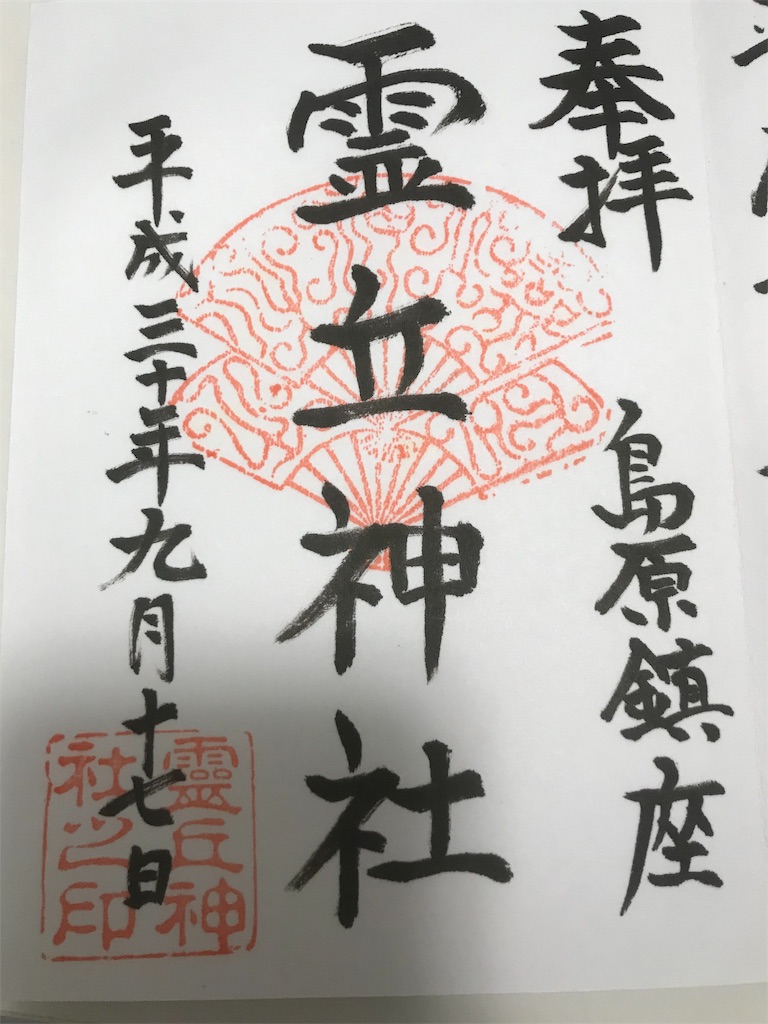 奉拝
島原鎮座
霊丘神社
平成三十年九月十七日
靈丘神
社之印